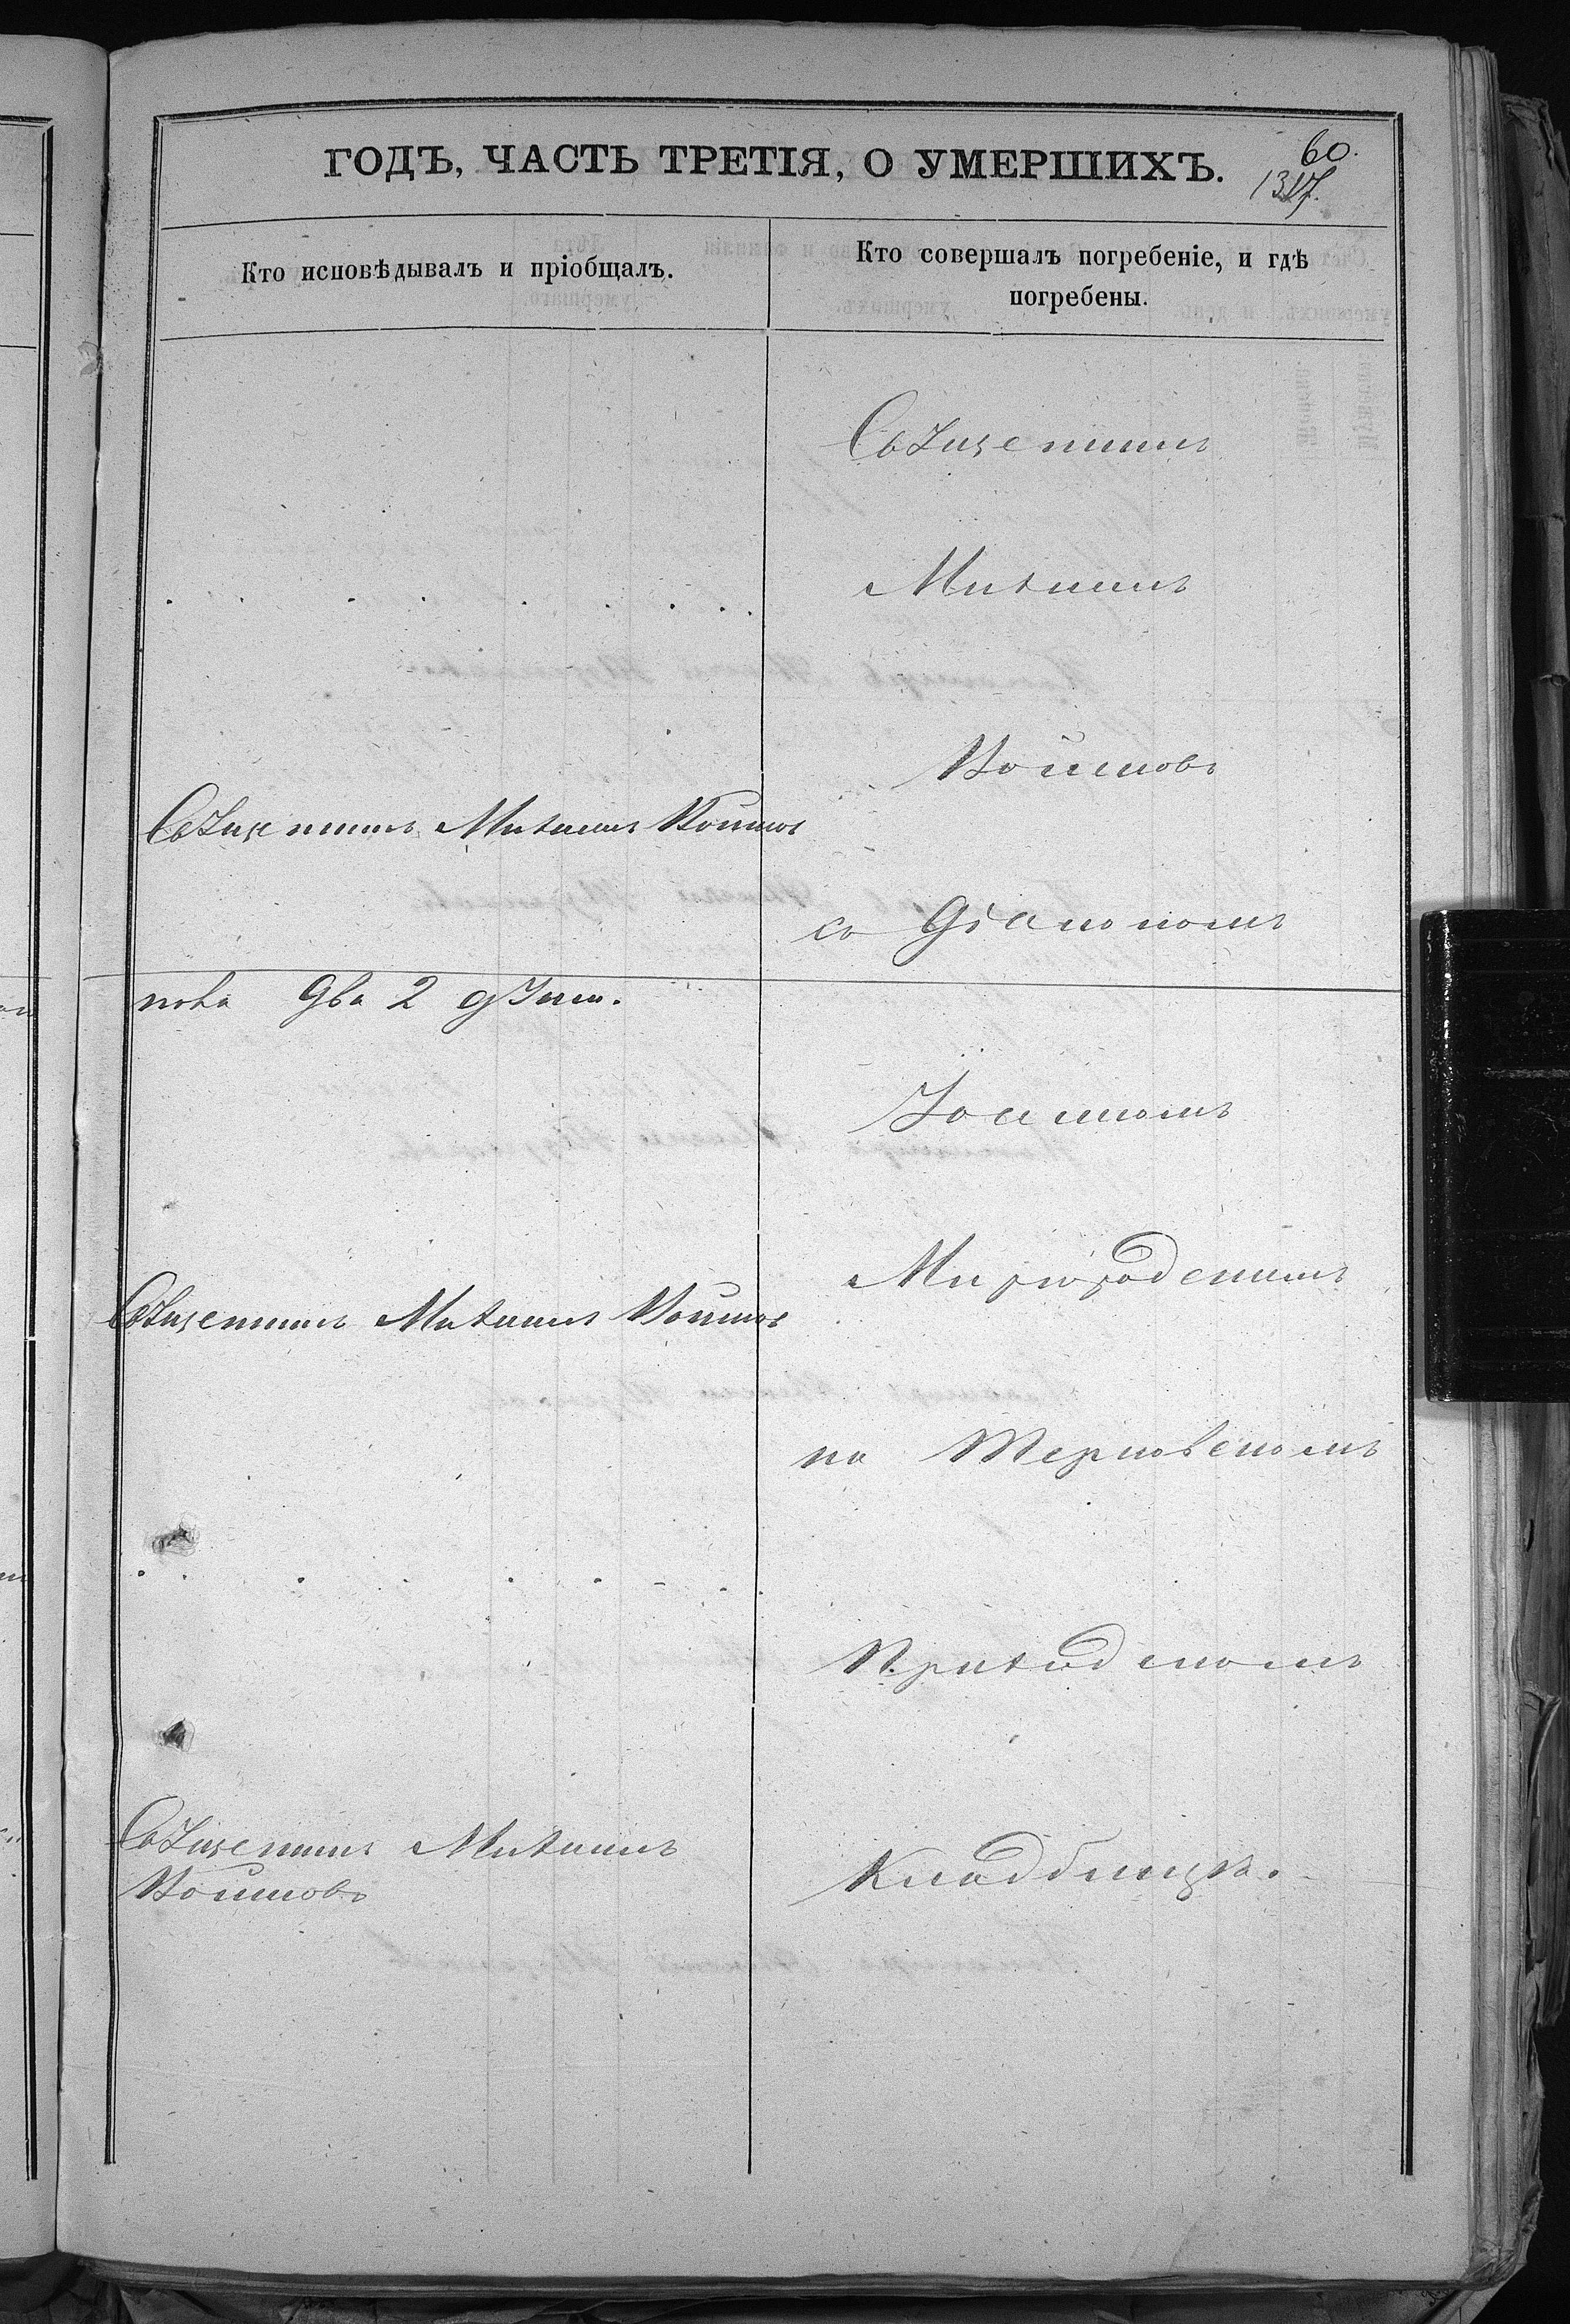 ГОДЪ, ЧАСТЬ ТРЕТІЯ, О УМЕРШИХЪ.
60.
Кто исповѣдывалъ и пріобщалъ.
Кто совершалъ погребеніе, и гдѣ
погребены.
Священникъ
Михаилъ
Войновъ
Священникъ Михаилъ Войнов
съ Діакономъ
два 2 дѣти.
Іоанномъ
Священникъ Михаилъ Войнов
на
Приходскомъ
Священникъ Михаилъ
Войновъ
Кладбищѣ.